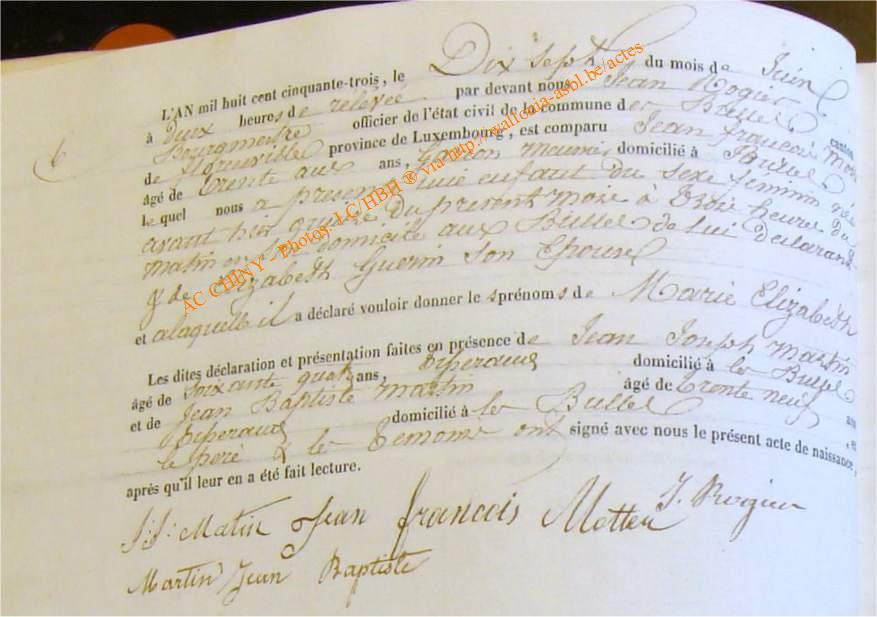 L'AN mil huit cent cinquante-trois, le Dix Sept du mois de Juin
à Deux heures de relevée par devant nous Jean Rogier
Bourgmestre officier de l'état civil de la commune des Bulles canton
de florenville province de Luxembourg, est comparu Jean francois
âgé de trente ans, domicilié à Bulles
le quel nous a presenté une enfant du sexe feminin née
avant hier quinze du present mois à trois heures du
matin en son domicile aux Bulles de lui declarant
& de Elizabeth Guerin Son Epouse
et alaquelle il a déclaré vouloir donner le sprénoms de Marie Elizabeth
Les dites déclaration et présentation faites en présence de Jean Joseph Martin
âgé de Soixante quatre ans, domicilié à les Bulles
et de Jean Baptiste Martin âgé de trente neuf ans
domicilié à les Bulles, et
le peré & les temoins ont signé avec nous le présent acte de naissance,
après qu'il leur en a été fait lecture.
J: J: Matin Jean francois Motteu J. Rogier
Martin Jean Baptiste
6
AC CHINY - Photos- LC/HBH ® via http://wallonia-asbl.be/actes